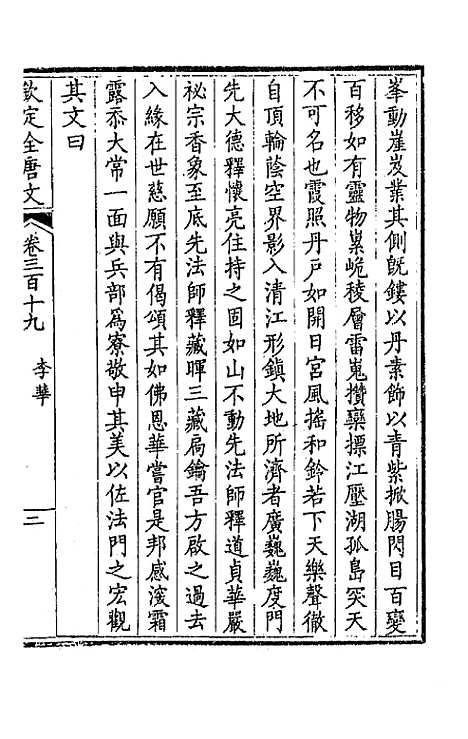 峯動崖岌業其側旣鏤以丹素飾以青紫掀腸閃目百變
百移如有靈物累峗稜層雷嵬攢欒摽江壓湖孤島突天
不可名也霞照丹戶如開日宮風搖和鈴若下天樂聲徹
自頂輪蔭空界影入清江形鎮大地所濟者廣巍巍度門
先大德釋懷亮住持之固如山不動先法師釋道貞華嚴
祕宗香象至底先法師釋藏暉三藏扃鑰吾方啟之過去
入緣在世慈願不有偈頌其如佛恩華嘗官是邦感深霜
露忝大常一面與兵部為寮敬申其美以佐法門之宏觀
其文曰
欽定全唐文
卷三百十九
李華
三